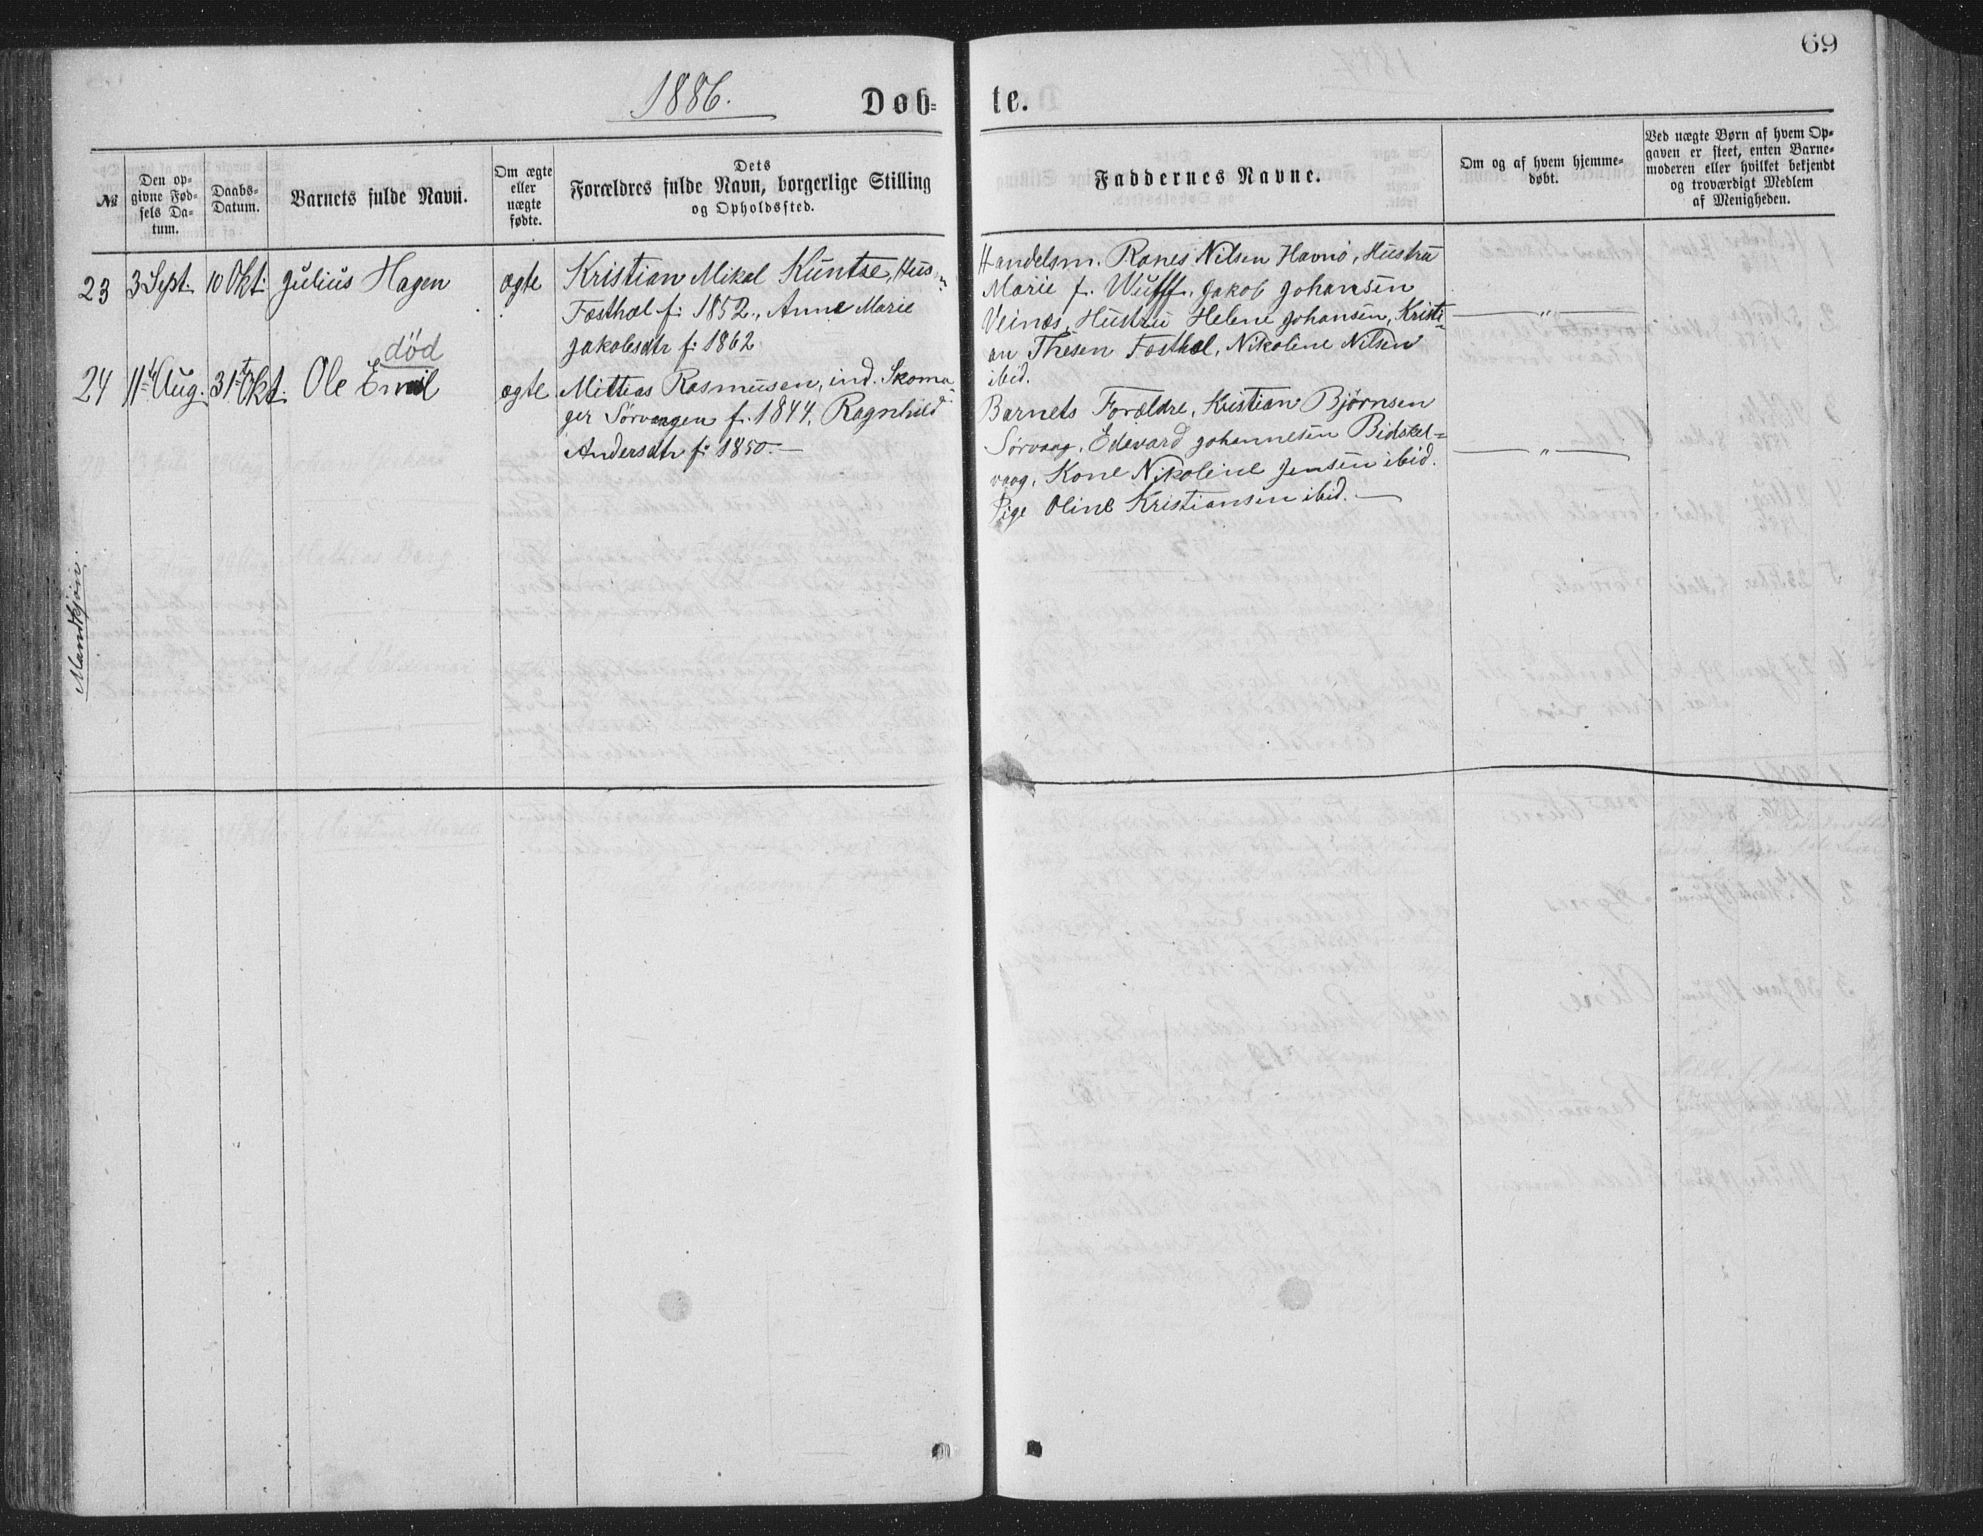 69
1886.
Døb-
te.
№
Den op-
givne Fød-
sels Da-
tum.
Daabs-
Datum.
Barnets fulde Navn.
Om ægte
eller
uægte
fødte.
Dets
Forældres fulde Navn, borgerlige Stilling
og Opholdssted.
Faddernes Navne.
Om og af hvem hjemme-
døbt.
Ved uægte Børn af hvem Op-
gaven er skeet, enten Barne-
moderen eller hvilket bekjendt
og troværdigt Medlem
af Menigheden.
Mandkjøn.
23
3 Sept.
10 Okt.
Julius Hagen
ægte
Kristian Mikal Kuntse, Husm
Føsthæl f: 1852., Anne Marie
Jakobsdtr f: 1862
Handelsm. Rones Nilsen Havnø, Hustru
Marie f. Wulff, Jakob Johansen
Veines, Hustru Helene Johansen, Kristi-
an Thesen Føsthæl, Nikoline Nilsen
ibid.
— " —
24
11te Aug.
31te Okt.
død
Ole Emil
ægte
Mittias Rasmusen, ind. Skoma-
ger Sørvaagen f. 1844, Ragnhild
Andersdtr f: 1850. —
Barnets Forældre, Kristian Bjørnsen
Sørvaag, Edevard Johannesen Bidskel-
vaag, Kone Nikoline Jensen ibid.
Pige Oline Kristiansen ibid. —
— " —